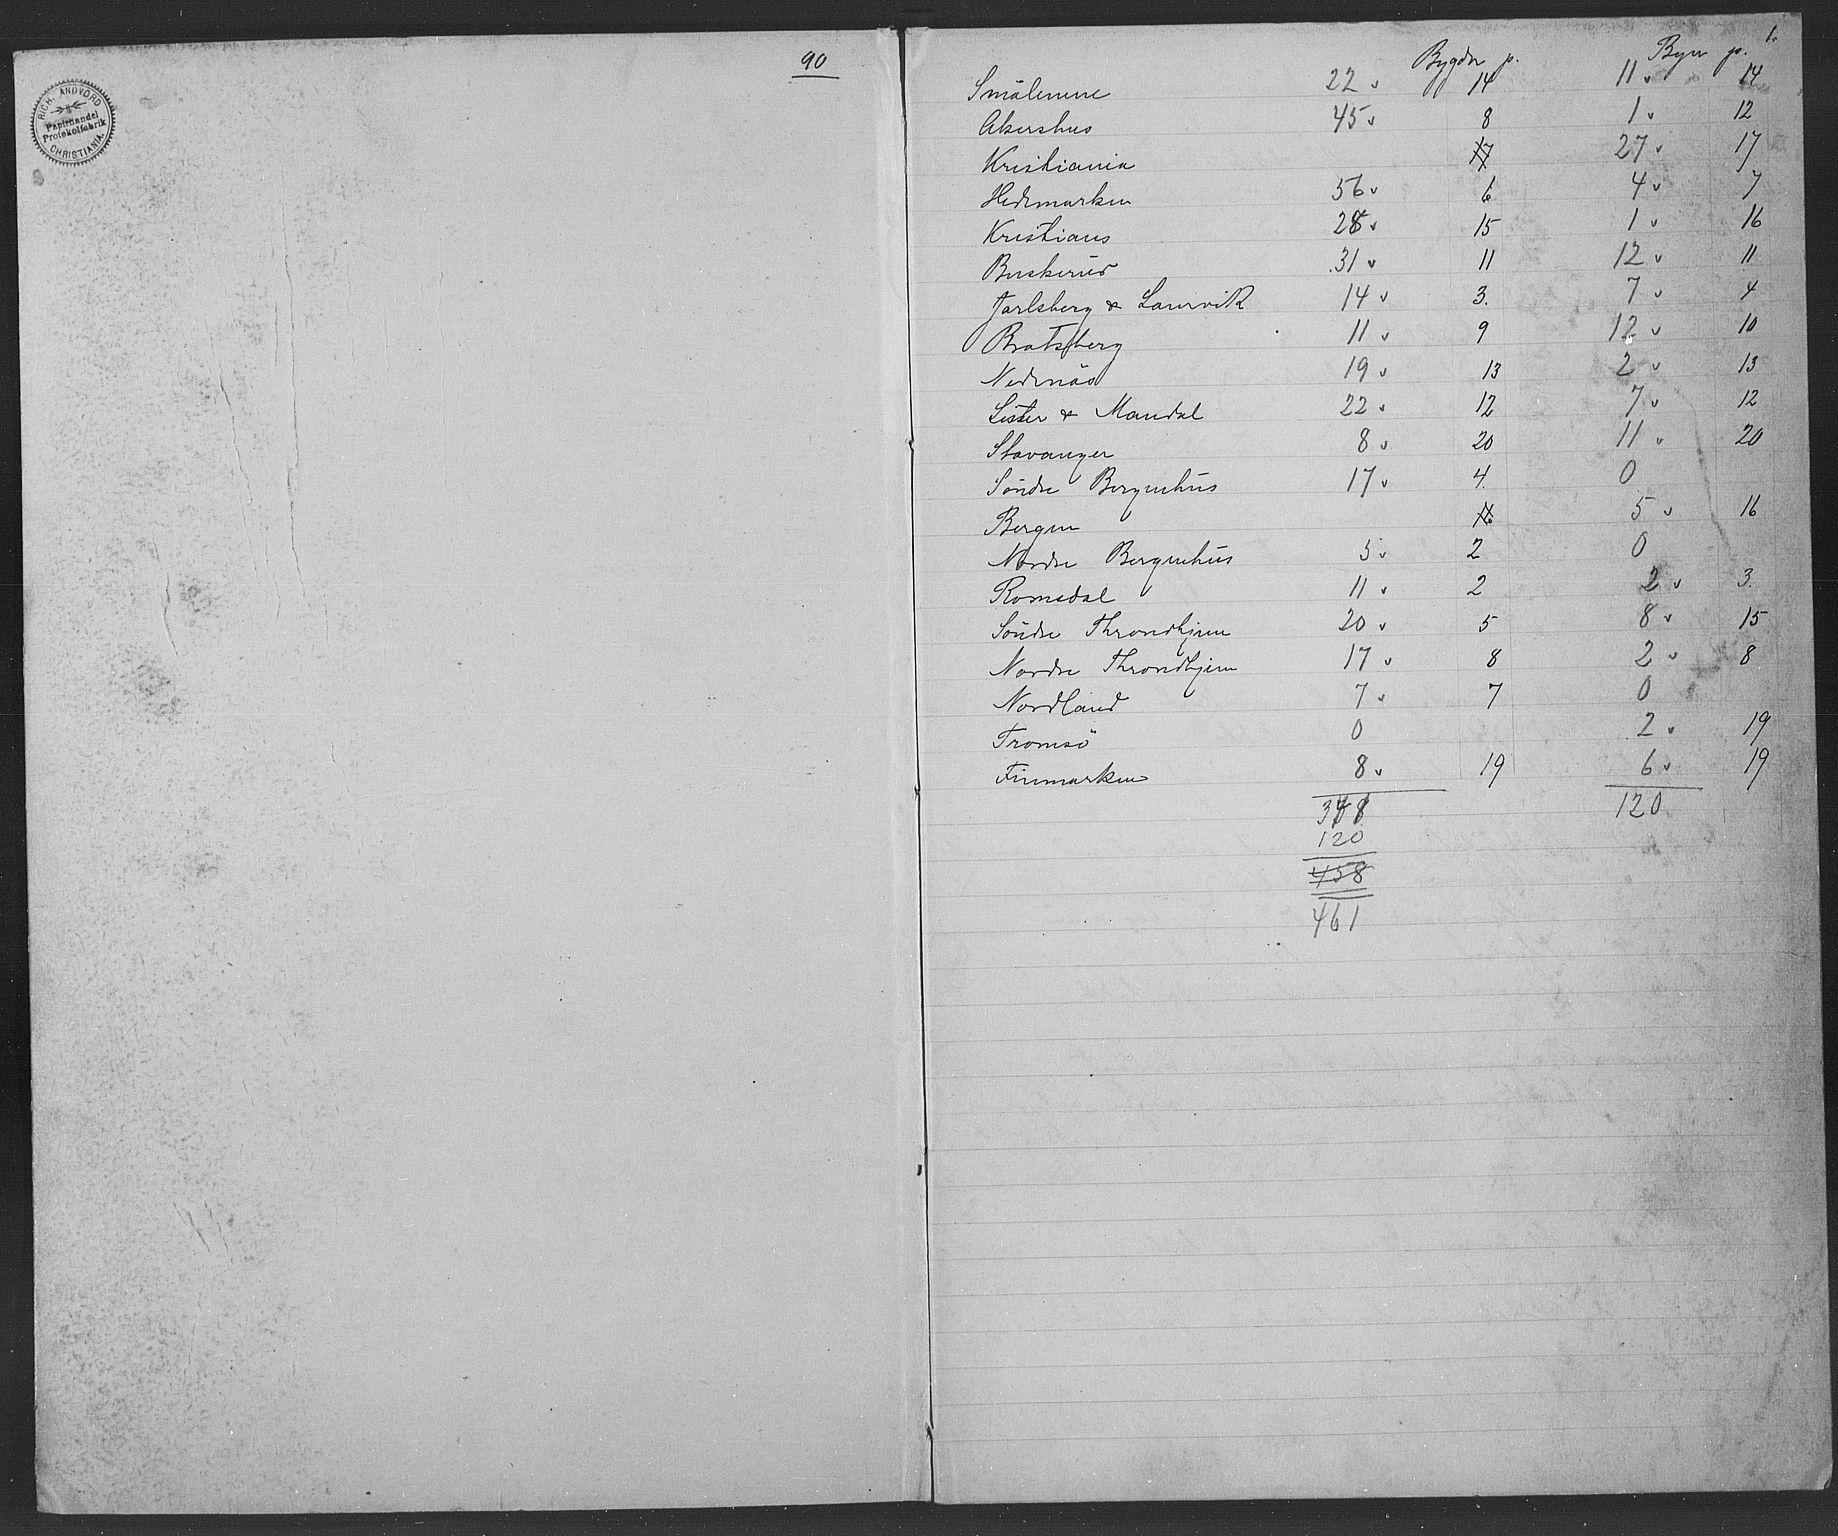 90
RICH. ANDVORD
Papirhandel
Protokolfabrik
CHRISTIANIA.
1.
Bygder p. Byer p.
Smålenene 22 v 14 11 v 14
Akershus 45 v 8 1 v 12
Kristiania 17 27 v 17
Hedemarken 56 v 6 4 v 7
Kristians 28 v 15 1 v 16
Buskerud 31 v 11 12 v 11
Jarlsberg & Laurvik 14 v 3. 7 v 4
Bratsberg 11 v 9 12 v 10
Nedenäs 19 v 13 2 v 13
Lister & Mandal 22 v 12 7 v 12
Stavanger 8 v 20 11 v 20
Söndre Bergenhus 17 v 4. 0
Bergen 16 5 v 16
Nordre Bergenhus 5 v 2 0
Romsdal 11 v 2 2 v 3
Söndre Throndhjem 20 v 5 8 v 15
Nordre Throndhjem 17 v 8 2 v 8
Nordland 7 v 7 0
Tromsö 0 2 v 19
Finmarken 8 v 19 6 v 19
120
120
458
461